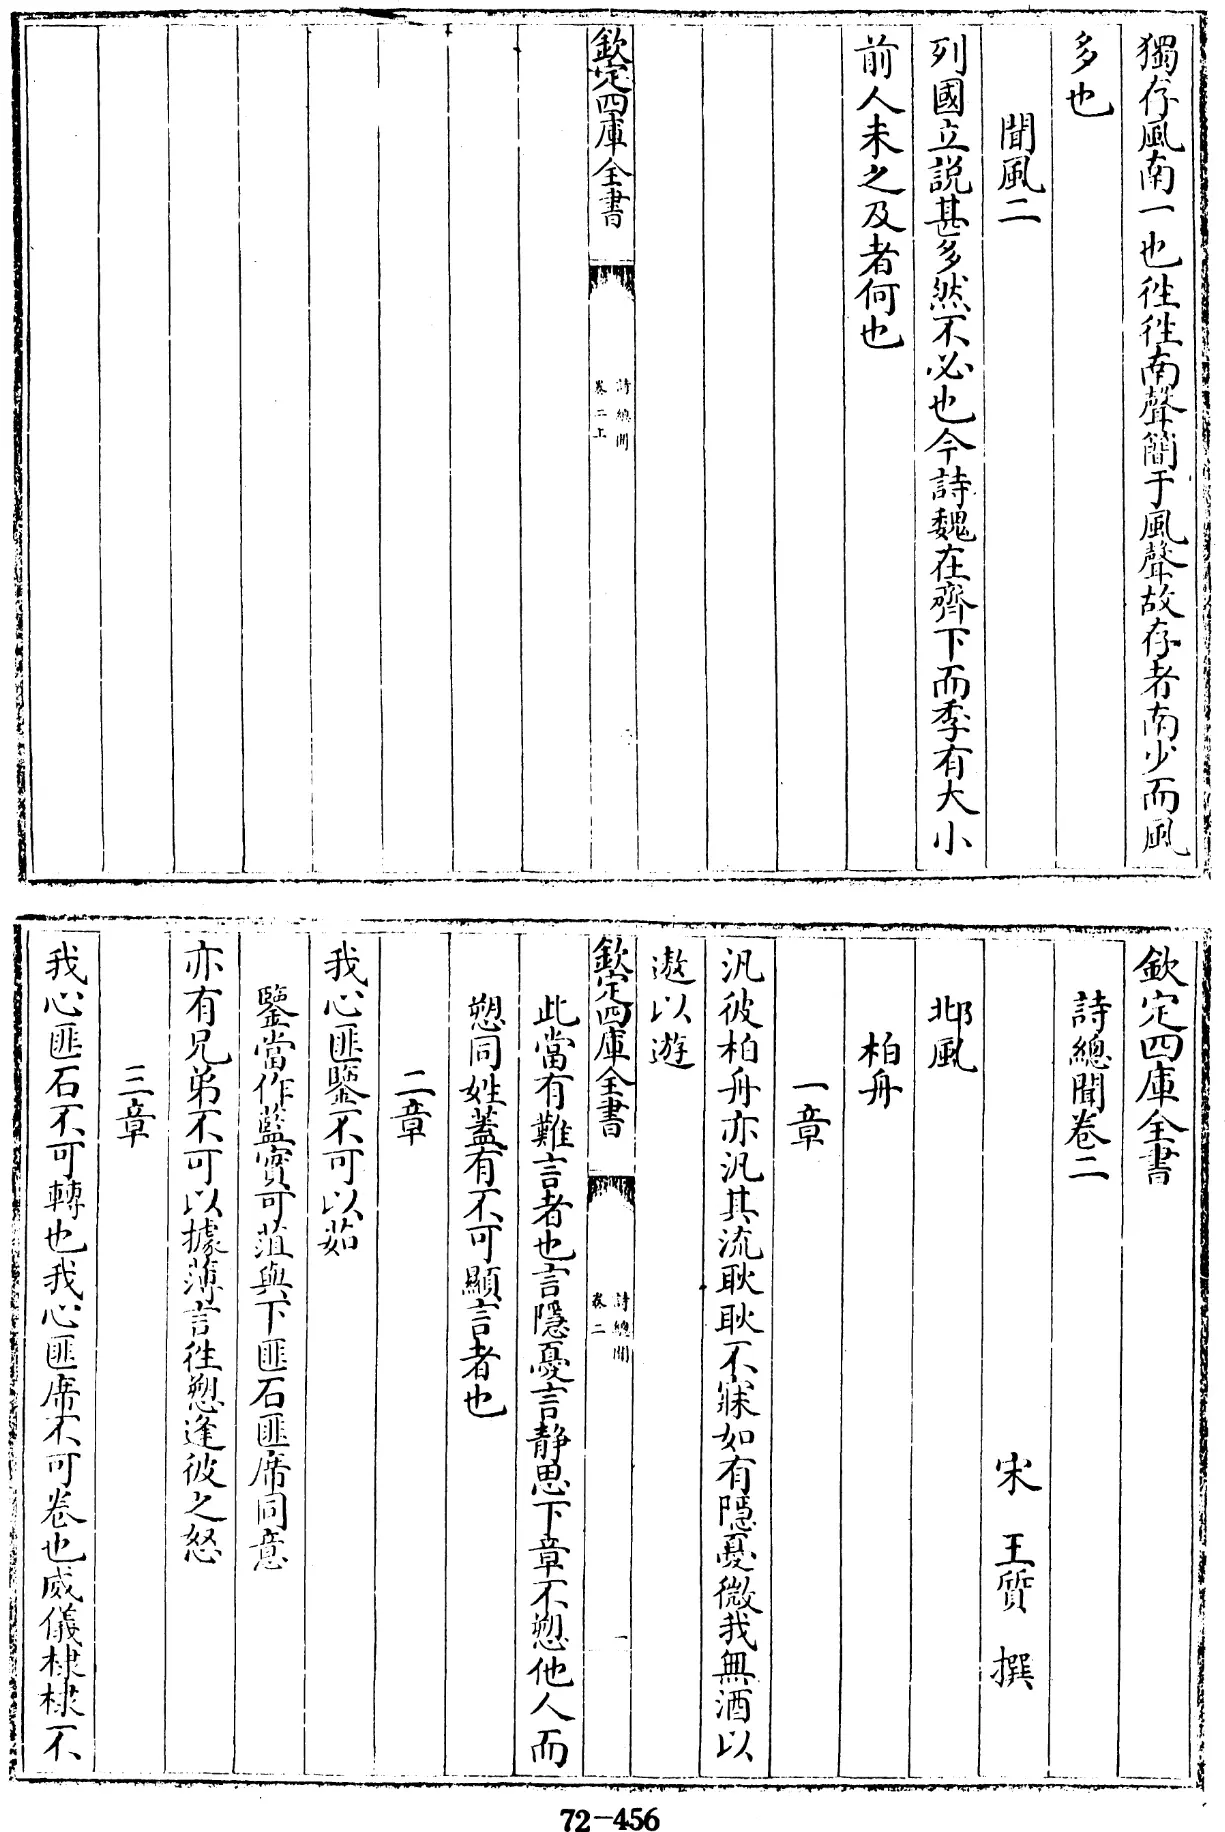 獨存風南一也徃徃南聲簡于風聲故存者南少而風
多也
聞風二
列國立説甚多然不必也今詩魏在齊下而季有大小
前人未之及者何也
欽定四庫全書
詩總聞
卷二上
欽定四庫全書
詩總聞卷二
宋 王質 撰
邶風
柏舟
一章
汎彼柏舟亦汎其流耿耿不寐如有隱憂微我無酒以
遨以遊
欽定四庫全書
詩總聞
卷二
一
此當有難言者也言隱憂言静思下章不愬他人而
愬同姓蓋有不可顯言者也
二章
我心匪鑒不可以茹
鑒當作藍實可葅與下匪石匪席同意
亦有兄弟不可以據薄言徃愬逢彼之怒
三章
我心匪石不可轉也我心匪席不可卷也威儀棣棣不
72-456